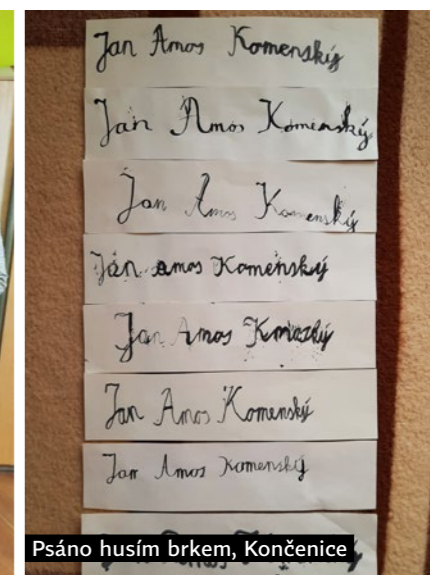 Jan Amos Komenský
Jan Amos Komenský
Jan Amos Komenský
Jan amos Komenský
Jan Amos
Jan Amos Komenský
Jan Amos Komenský
Psáno husím brkem, Končenice